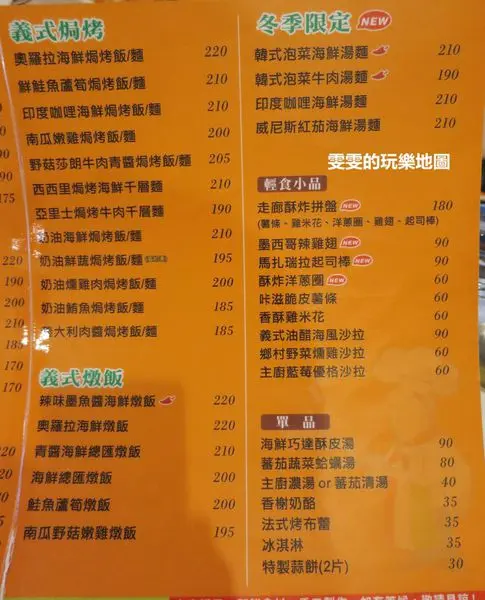 義式焗烤
奧羅拉海鮮焗烤飯/麵 220
鮮鮭魚蘆筍焗烤飯/麵 210
印度咖哩海鮮焗烤飯/麵 210
南瓜嫩雞焗烤飯/麵 200
野菇莎朗牛肉青醬焗烤飯/麵 205
西西里焗烤海鮮千層麵 210
亞里士焗烤牛肉千層麵 190
奶油海鮮焗烤飯/麵 210
奶油鮮蔬焗烤飯/麵 195
奶油燻雞肉焗烤飯/麵 200
奶油鮪魚焗烤飯/麵 185
義大利肉醬焗烤飯/麵 185
義式燉飯
辣味墨魚醬海鮮燉飯 220
奧羅拉海鮮燉飯 220
青醬海鮮總匯燉飯 210
海鮮總匯燉飯 200
鮭魚蘆筍燉飯 200
南瓜野菇嫩雞燉飯 195
190
175
220
190
210
210
170
170
冬季限定 NEW
韓式泡菜海鮮湯麵 210
韓式泡菜牛肉湯麵 190
印度咖哩海鮮湯麵 210
威尼斯紅茄海鮮湯麵 210
雯雯的玩樂地圖
輕食小品
走廊酥炸拼盤 NEW 180
(薯條、雞米花、洋蔥圈、雞翅、起司棒)
墨西哥辣雞翅 NEW 90
馬扎瑞拉起司棒 NEW 90
酥炸洋蔥圈 NEW 60
咔滋脆皮薯條 60
香酥雞米花 60
義式油醋海風沙拉 90
鄉村野菜燻雞沙拉 60
主廚藍莓優格沙拉 60
單 品
海鮮巧達酥皮湯 90
蕃茄蔬菜蛤蠣湯 80
主廚濃湯 or 蕃茄清湯 40
香榭奶酪 35
法式烤布蕾 35
冰淇淋 35
特製蒜餅(2片) 30